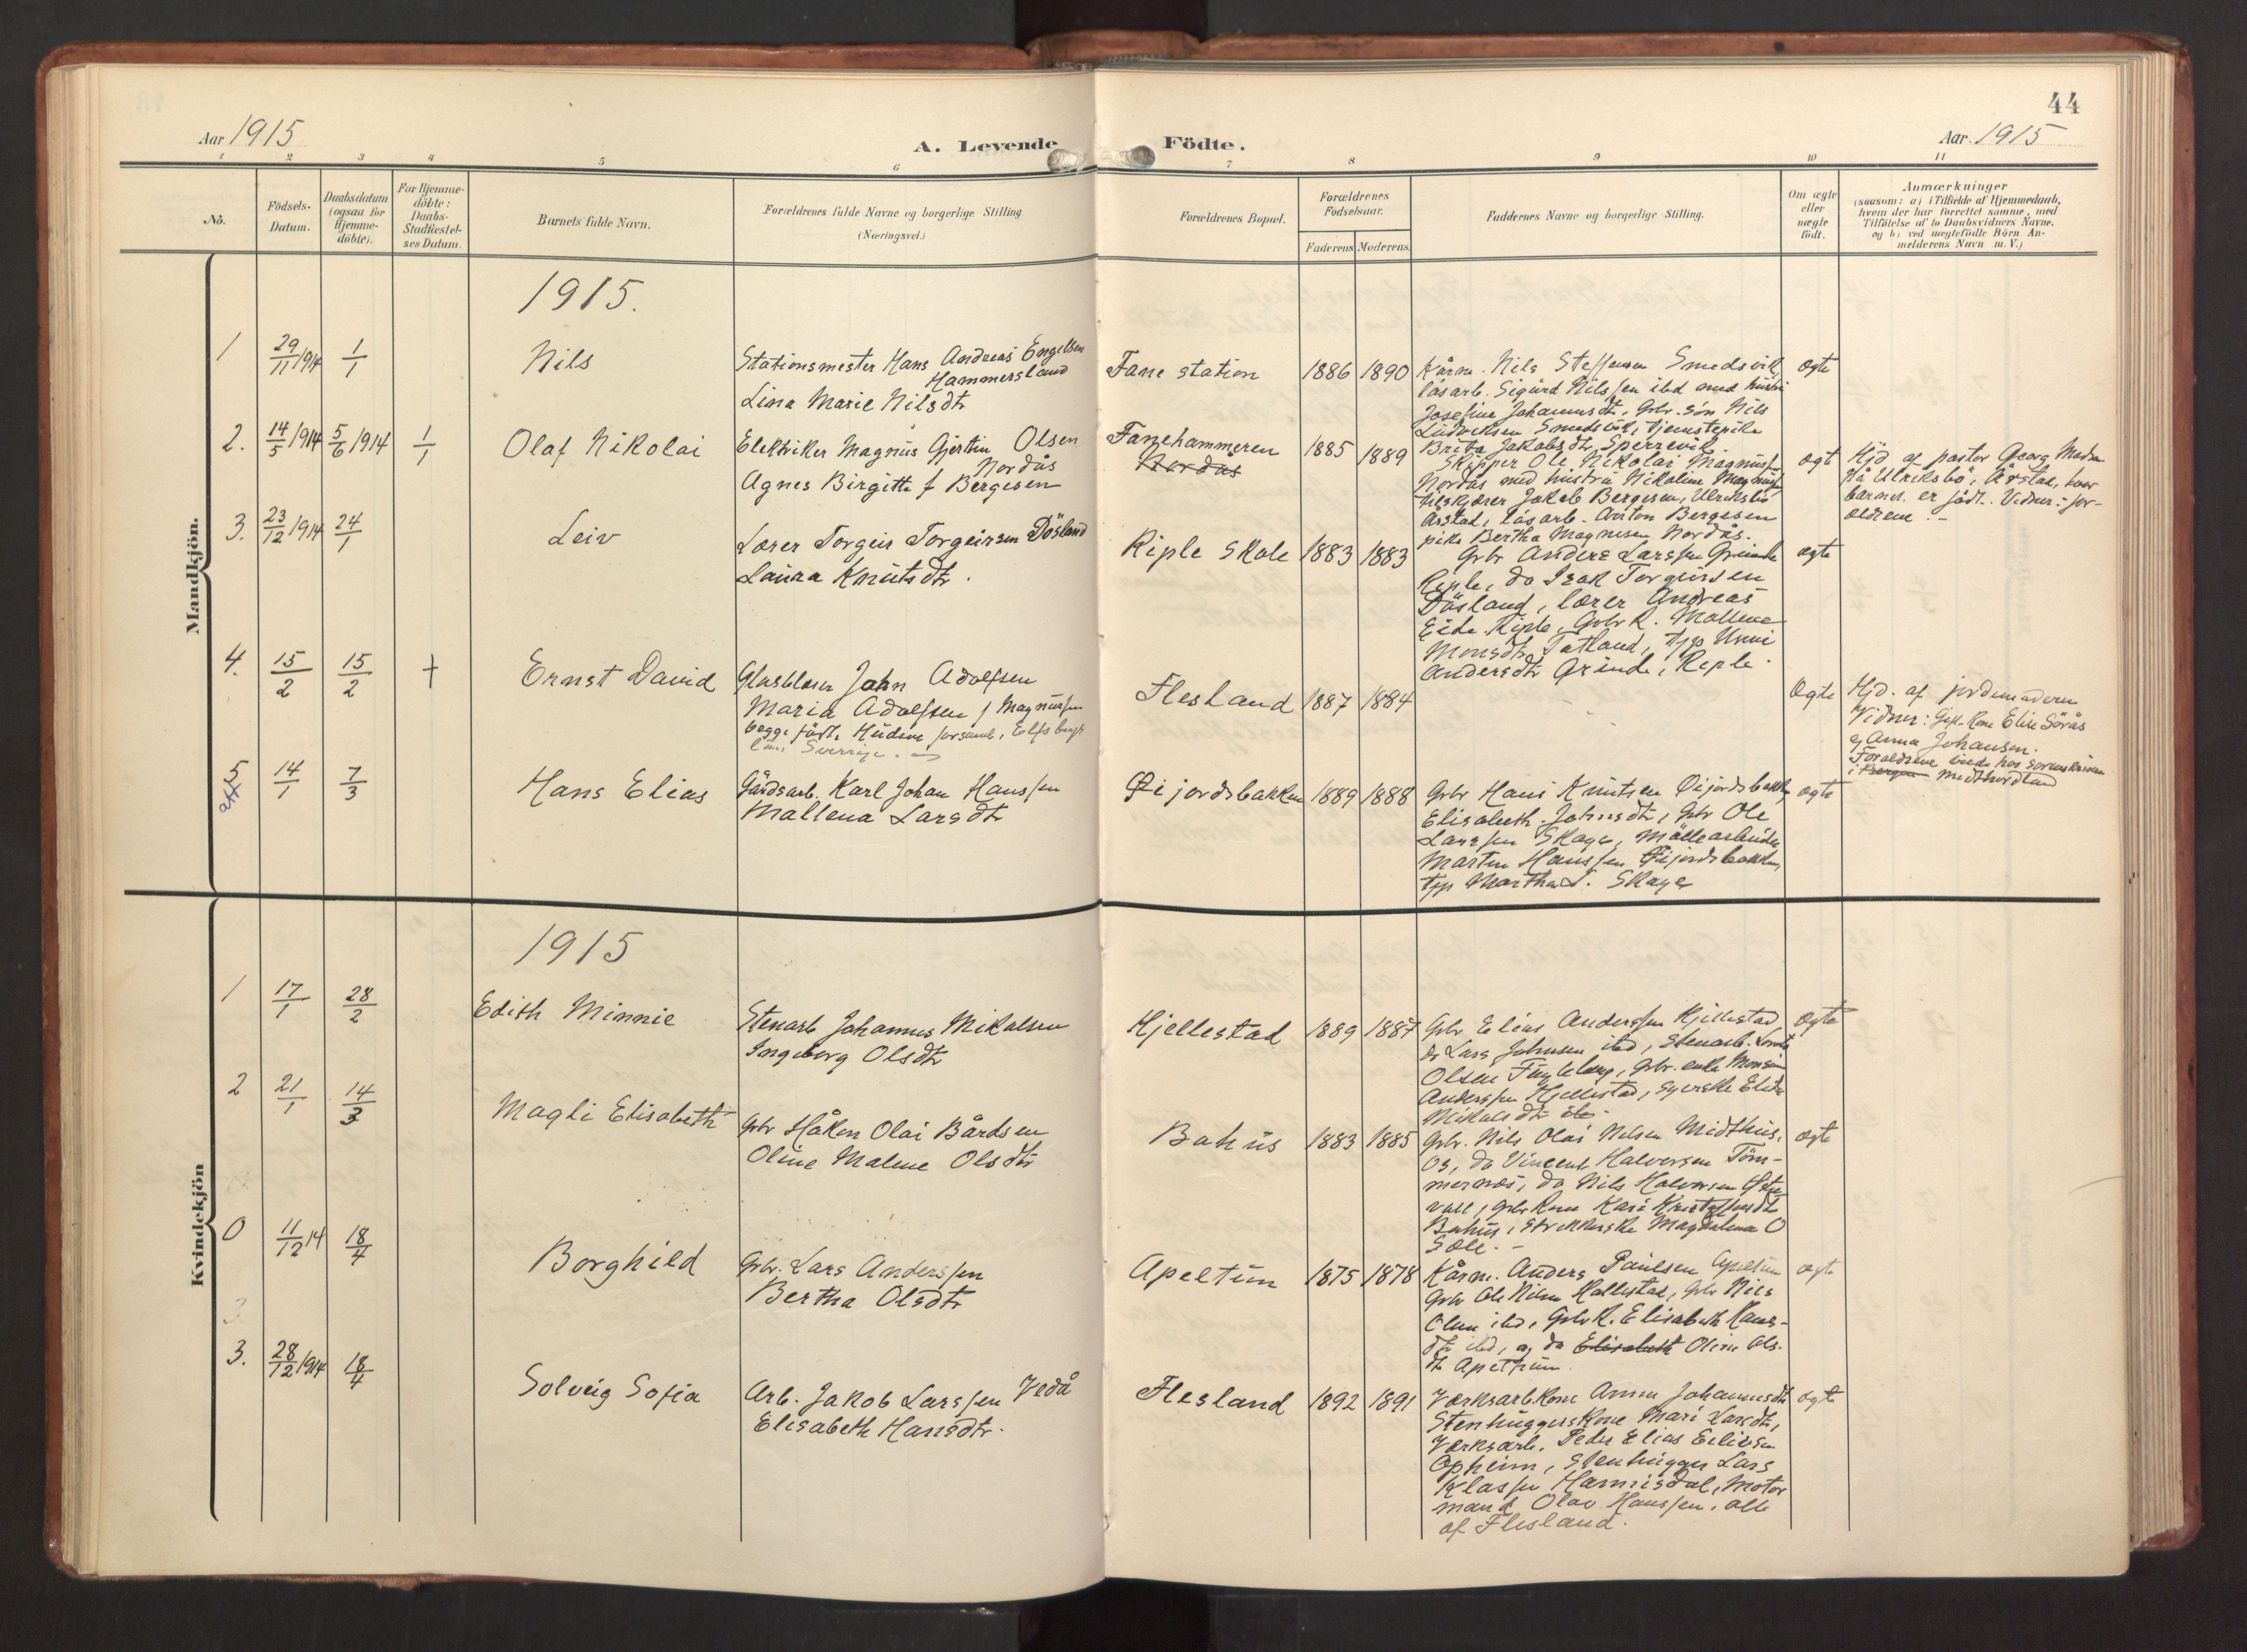 44
Aar 1915
A. Levende
Födte.
Aar. 1915
1 2 3 4 5 6 7 8 9 10 11
No.
Födsels-
Datum.
Daabsdatum
(ogsaa for
Hjemme-
döbte).
For Hjemme-
döbte:
Daabs-
Stadfæstel-
ses Datum.
Barnets fulde Navn.
Forældrenes fulde Navne og borgerlige Stilling.
(Næringsvei.)
Forældrenes Bopæl.
Forældrenes
Födselsaar.
Faderens Moderens.
Faddernes Navne og borgerlige Stilling.
Om ægte
eller
uægte
födt.
Anmærkninger
(saasom: a) i Tilfælde af Hjemmedaab,
hvem der har forrettet samme, med
Tilföielse af to Daabsvidners Navne,
og b) ved uægtefödte Börn An-
melderens Navn m. V.)
Mandkjön.
1915.
1 29/11 1914 1/1 Nils
Stationsmester Hans Andreas Engelsen
Hammersland
Lina Marie Nilsdtr
Fane station 1886 1890
Kårm. Nils Steffensen Smedsvik,
løsarb. Sigurd Nilssen ibd med hustru
Josefine Johannesdtr, Gbr. søn Nils
Ludviksen Smedsvik, tjenestepike
Brita Jakobsdtr, Sperrevik.
ægte
2. 14/5 1914 5/6 1914 1/1 Olaf Nikolai
Elektriker Magnus Gjertin Olsen
Nordås
Agnes Birgitte f Bergesen
Fanehammeren
Nordås
1885 1889
Skipper Ole Nikolai Magnuss.
Nordås med hustru Nikoline Magnuss.
Jakob Bergesen, Ulriksbø
Årstad, løsarb. Anton Bergesen
pike Bertha Magnesen Nordås.
ægt
Hjd af pastor Georg
på Ulriksbø, Årstad, hvor
barnet er født. Vidner: for-
ældrene. -
3. 23/12 1914 24/1 Leiv
Lærer Torgeir Torgeirsen Døsland
Laura Knutsdtr.
Riple Skole 1883 1883
Gbr Anders Larssen Grinde
Riple, do Isak Torgeirsen
Døsland, lærer Andreas
Eide Riple, Gbr K. Mallene
Monsdtr Tatland, tjp Unni
Andersdtr Grinde, Riple.
ægte
4. 15/2 15/2 + Ernst David
Glasblæser John Adolfsen
Maria Adolfsen f Magnussen
begge født i Hudene forsaml., Elfsborgs
län Sverrige.
Flesland 1887 1884
Ægte
Hjd. af jordmoderen
Vidner: Gift Kone Elise Sørås
og Anna Johansen.
Forældrene viede hos sorenskriveren
i Bergen Midthordland
5 att 14/1 7/3 Hans Elias
Gårdsarb. Karl Johan Hanssen
Mallena Larsdtr
Øijordsbakken 1889 1888
Gbr Hans Knutsen Øijordsbakk,
Elisabeth Johnsdtr, Gbr Ole
Larssen Skage, Møllearbeider
Martin Hanssen Øijordsbakken,
tjp Martha L. Skage
ægte
Kvindekjön
1915
1 17/1 28/2 Edith Minnie
Stenarb Johannes Mikalsen
Ingeborg Olsdtr
Hjellestad 1889 1887
Gbr Elias Anderssen Hjellestad
do Lars Johnsen ibd, Stenarb.
Olsen, Gbr. enke
Anderssen Hjellestad, syerske Elida
Mikalsdtr ibd.
Ægte
2 21/1 14/3 Magli Elisabeth
Gbr Håkon Olai Bårdsen
Oline Malene Olsdtr
Bahus 1883 1885
Gbr. Nils Olai Nilsen Midthus,
Os, do Vincent Halvorsen Tøm-
mernes, do Nils Halvorsen
vold, gbr Kone Kari Kristoffersdtr
Bahus, strikkerske Magdalena O
Søle. -
ægte
0 11/12 14 18/4 Borghild
Gbr. Lars Anderssen
Bertha Olsdtr
Apeltun 1875 1878
Kårm. Anders Paulsen Apeltun
Gbr Ole Nilsen Hallestad, Gbr Nils
Olsen ibd, Gbr K. Elisabeth Hans-
dtr ibd, og do Elisabeth Oline Ols-
dtr Apeltun.
ægte
3.
3. 28/12 1914 18/4 Solveig Sofia
Arb. Jakob Larssen Vedå
Elisabeth Hansdtr.
Flesland 1892 1891
Værksarb. kone Anna Johannesdtr
Stenhuggerskone Mari Larsdtr,
Værksarb. Peder Elias Eilivsen
Opheim, Stenhugger Lars
Klassen Hamrisdal, Motor
mand Olav Hanssen, alle
af Flesland.
ægte